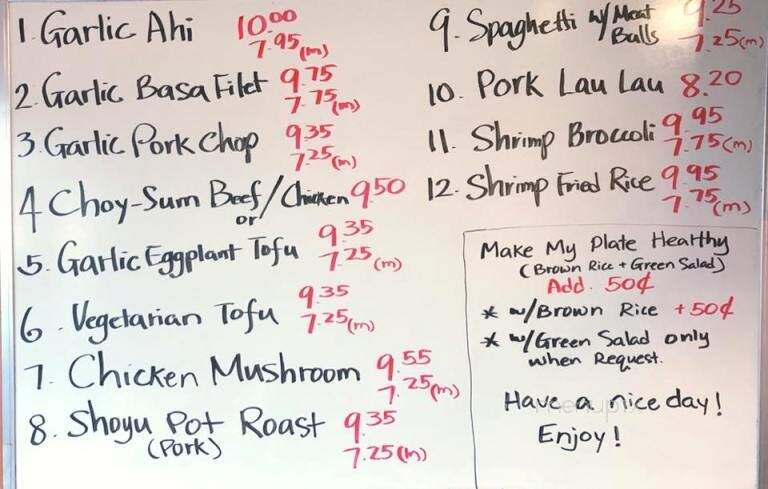 1. Garlic Ahi 10.00
7.95 (m)
2. Garlic Basa Filet 9.75
7.75 (m)
3. Garlic Pork Chop 9.35
7.25 (m)
4 Choy-Sum Beef/Chicken 9.50
or
5. Garlic Eggplant Tofu 9.35
7.25 (m)
6. Vegetarian Tofu 9.35
7.25 (m)
7. Chicken Mushroom 9.55
7.25 (m)
8. Shoyu Pot Roast 9.35
(Pork) 7.25 (m)
9. Spaghetti w/ Meat Balls 9.25
7.25 (m)
10. Pork Lau Lau 8.20
11. Shrimp Broccoli 9.95
7.75 (m)
12. Shrimp Fried Rice 9.95
7.75 (m)
Make My Plate Healthy
(Brown Rice + Green Salad)
Add. 50¢
* w/Brown Rice +50¢
* w/Green Salad only
when Request.
Have a nice day!
Enjoy!